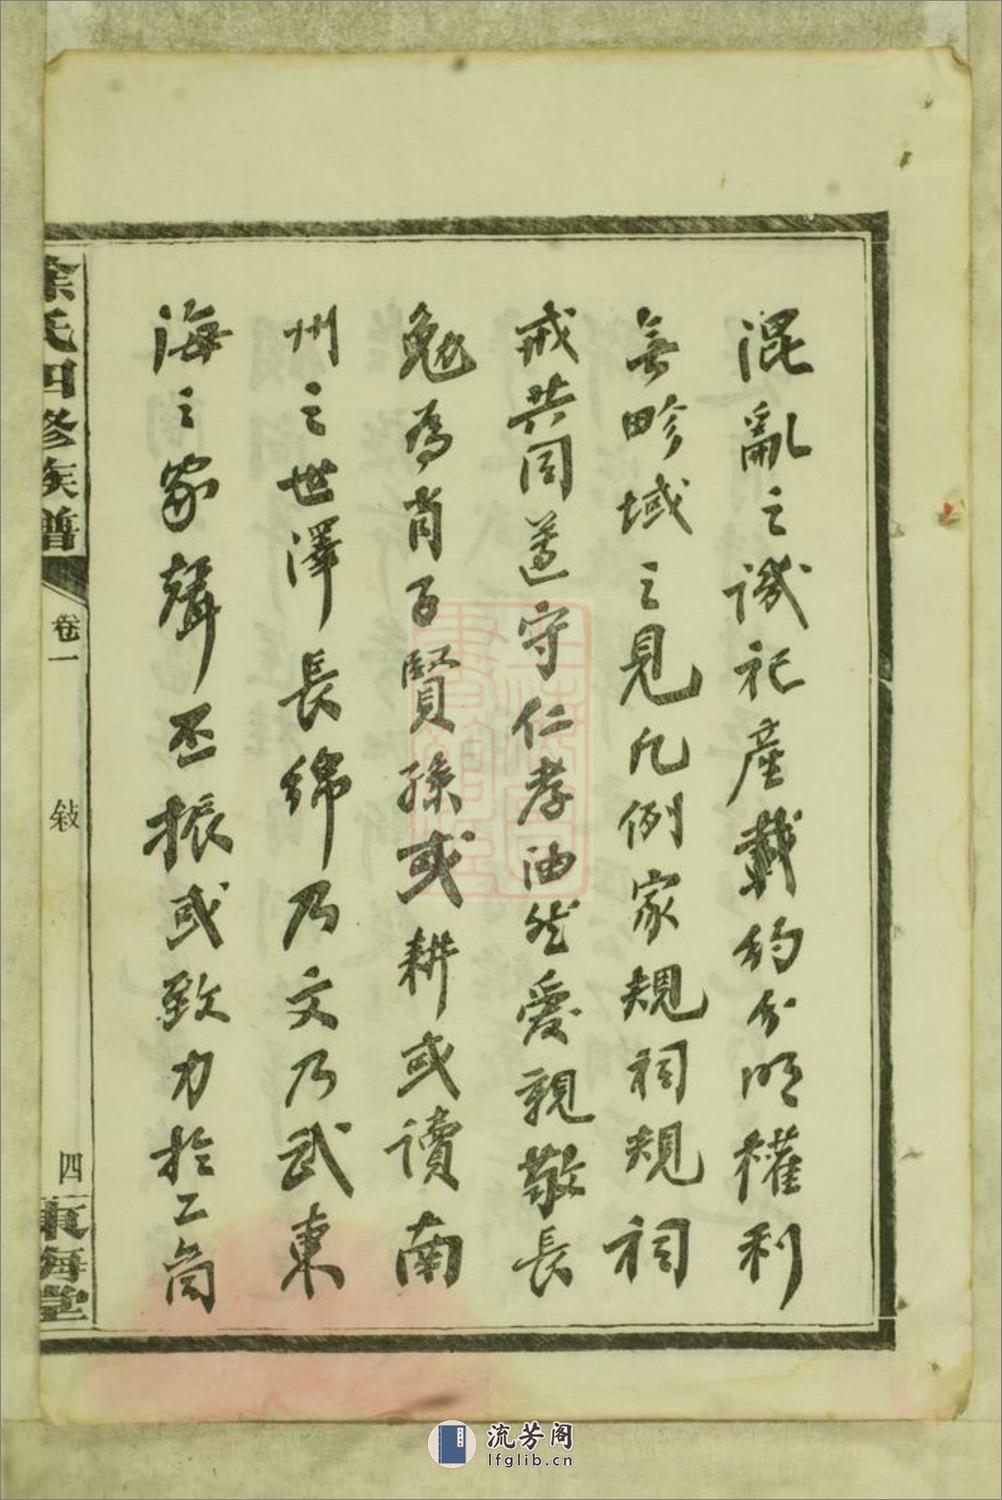 混亂之譏祀產載約分明權利
無畛域之見凡例家規祠規祠
戒共同遵守仁孝油然愛親敬長
勉為肖子賢孫或耕或讀南
州之世澤長綿乃文乃武東
海之家聲丕振或致力於工商
徐氏四修族譜
卷一
敍
四
東海堂
流芳阁
lfglib.cn